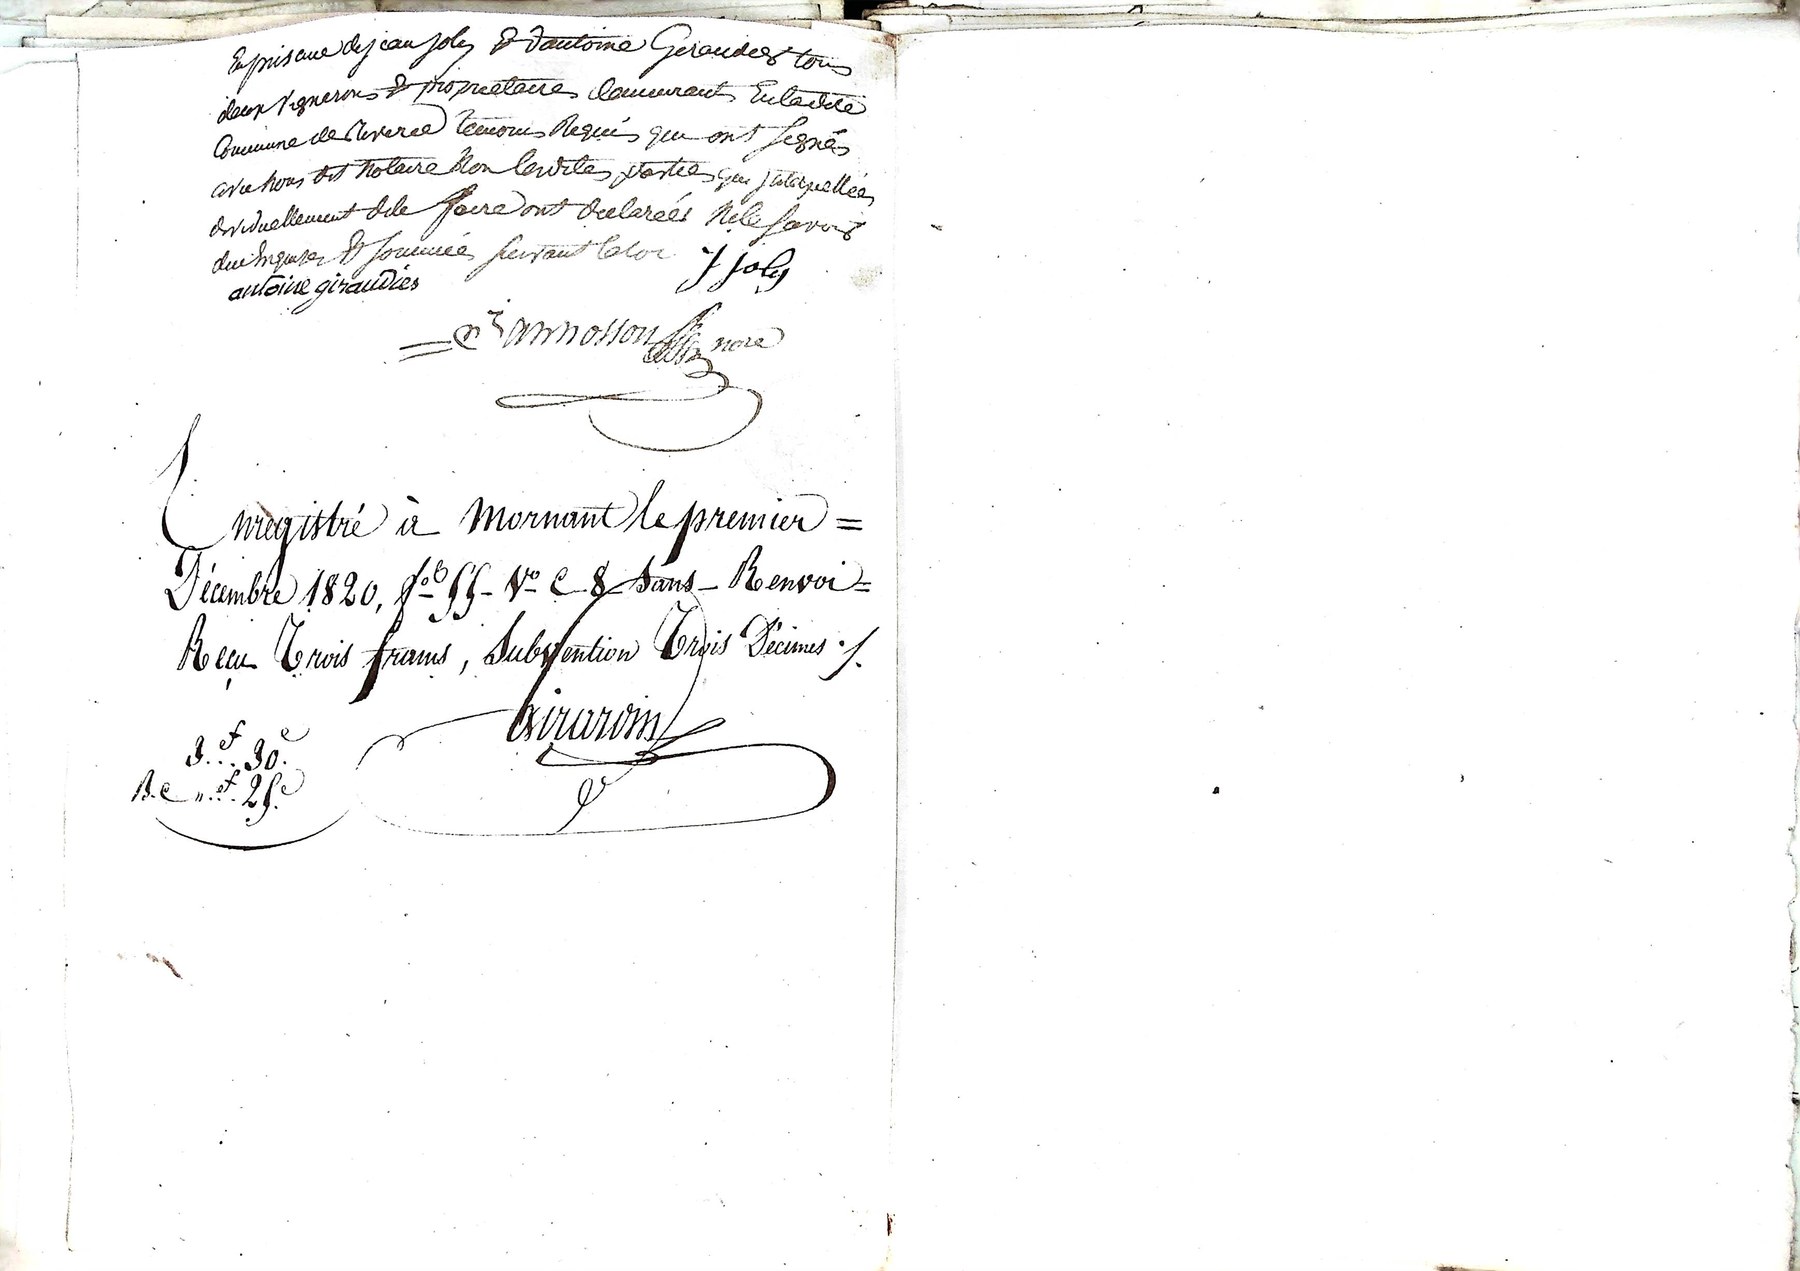 En présence de jean Joly & d'antoine Giraudier tous
deux Vignerons & propriétaires demeurants En ladite
Commune de Riverie témoins Requis qui ont signés
avec Nous dit Notaire Non lesdites parties qui interpellées
individuellement de le faire ont declarées Ne le savoir
due Enquises & sommées suivant la loi J Joly
antoine giraudier
nore
Enregistré à Mornant le premier =
Décembre 1820, fo 55 Vo C 8 Sans Renvoi =
Reçu Trois francs, Subvention Trois Décimes ./.
Girardin
3.f..30.c
R.e „.f. 25.c